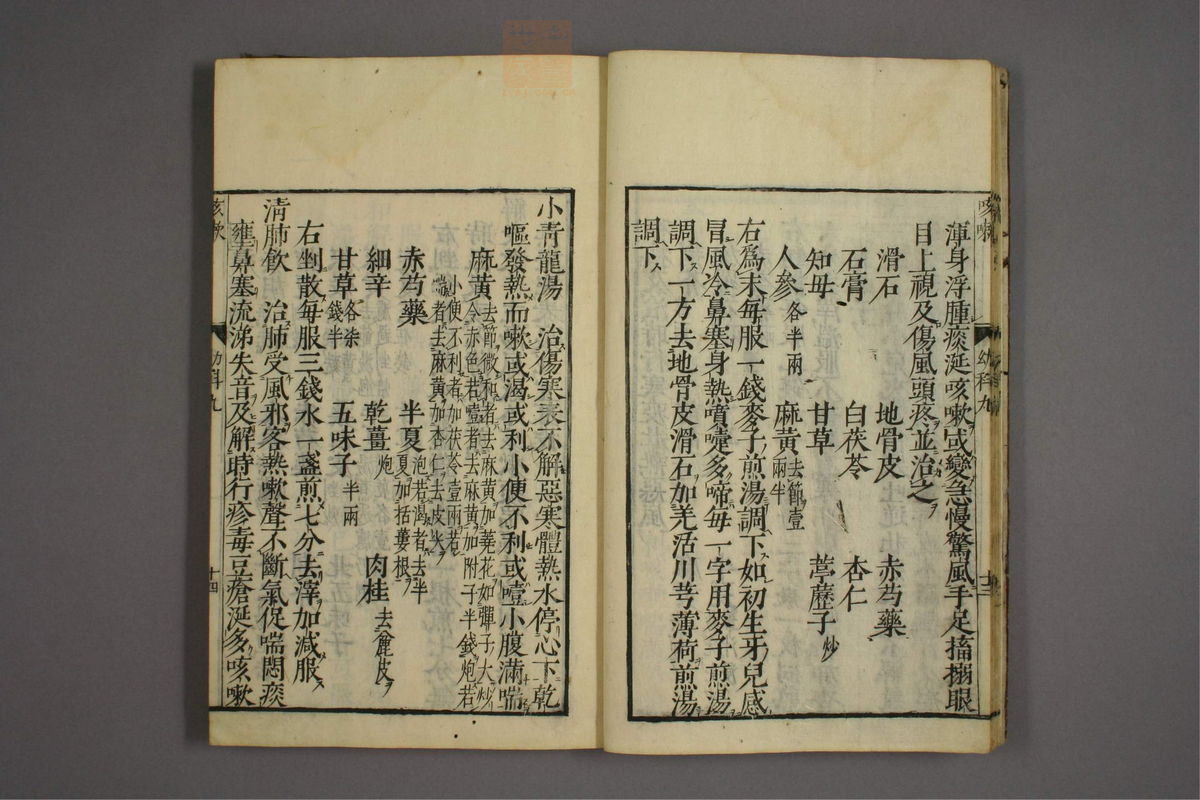 咳嗽 幼科九 十三
渾身浮腫痰涎咳嗽或變急慢驚風手足搐搦眼
目上視及傷風頭疼並治之
滑石 地骨皮 赤芍藥
石膏 白茯苓 杏仁
知母 甘草 葶藶子炒
人參各半兩 麻黃去節壹兩半
右爲末每服一錢麥子煎湯調下如初生牙兒感
冒風冷鼻塞身熱噴嚏多啼每一字用麥子煎湯
調下一方去地骨皮滑石加羌活川芎薄荷煎湯
調下
小青龍湯 治傷寒表不解惡寒體熱水停心下乾
嘔發熱而嗽或渴或利小便不利或噎小腹滿喘
麻黃去節微和者去麻黃加蕘花如彈子大炒令赤色若壹者去麻黃加附子半錢炮若
小便不利者加茯苓壹兩若喘者去麻黃加杏仁去皮尖
赤芍藥 半夏泡若渴者去半夏加括蔞根
細辛 乾薑炮 肉桂去麄皮
甘草各柒錢半 五味子半兩
右剉散每服三錢水一盞煎七分去滓加減服
清肺飲 治肺受風邪客熱嗽聲不斷氣促喘悶痰
壅鼻塞流涕失音及解時行疹毒豆瘡涎多咳嗽
咳嗽 幼科九 十四